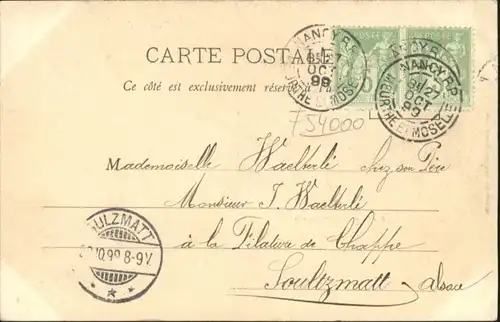 CARTE POSTALE
Ce côté est exclusivement réservé
NANCY R.P.
27
OCT
99
MEURTHE ET MOSELLE
NANCY R.P.
27
OCT
99
MEURTHE ET MOSELLE
F54000
Mademoiselle Waelterlé chez son Père
Monsieur J. Waelterlé
à la Filature de Chappe
Soultzmatt Alsace
SULZMATT
10.99 8-9V.